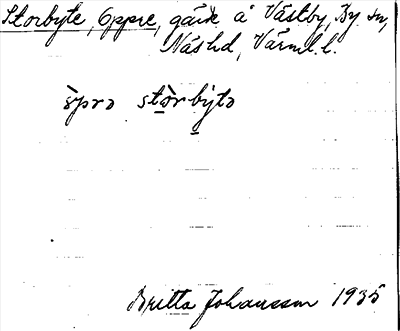 Storbyte, Öppre, gård å Västby, By sn,
Näs hd, Värml. l.
òprə stòrbýtə
Britta Johansson 1935